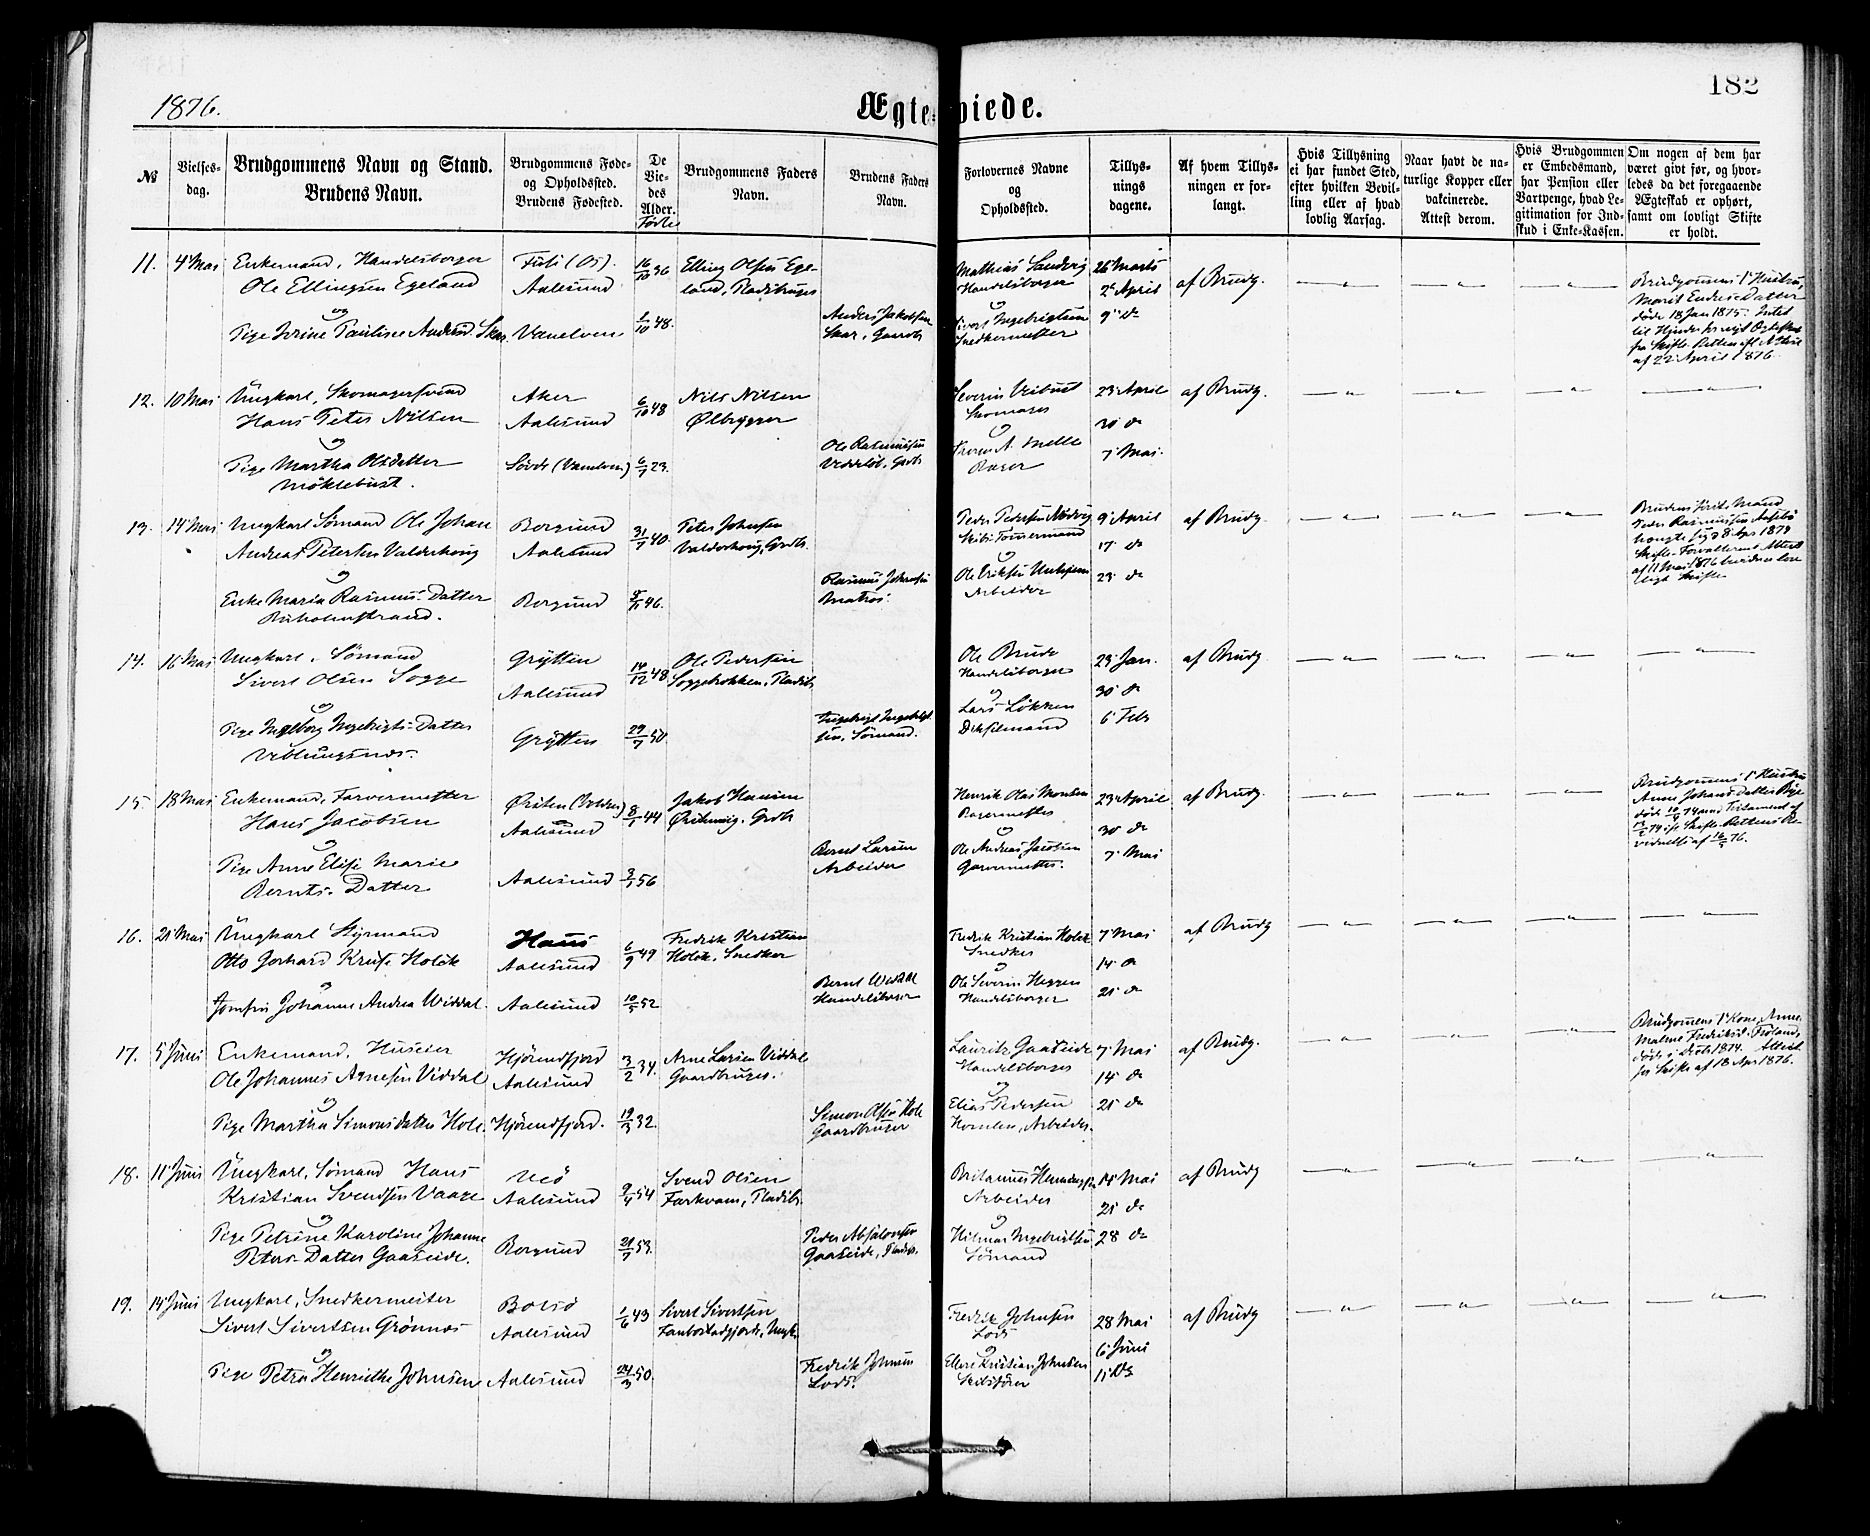 1876.
Ægteviede.
182
№
Vielses-
dag.
Brudgommens Navn og Stand.
Brudens Navn.
Brudgommens Føde-
og Opholdssted.
Brudens Fødested.
De
Vie-
des
Alder.
Fødte
Brudgommens Faders
Navn.
Brudens Faders
Navn.
Forlovernes Navne
og
Opholdssted.
Tillys-
nings
dagene.
Af hvem Tillys-
ningen er for-
langt.
Hvis Tillysning
ei har fundet Sted,
efter hvilken Bevil-
ling eller af hvad
lovlig Aarsag.
Naar havt de na-
turlige Kopper eller
vakeinerede.
Attest derom.
Hvis Brudgommen
er Embedsmand,
har Pension eller
Vartpenge, hvad Le-
gitimation for Ind-
skud i Enke-Kassen.
Om nogen af dem har
været givt før, og hvor-
ledes da det foregaaende
Ægteskab er ophørt,
samt om lovligt Skifte
er holdt.
11. 4 Mai Enkemand, Handelsborger
Ole Ellingsen Egeland
og
Pige Pauline Anders. Skar
(Os).
Aalesund
Vanelven
16/10 36
1/10 48.
Elling Olsen Ege-
land, Pladsbruger
Anders Jakobsen
Skar, Gaardb.
Mathias Sandvig
Handelsborger
og
Sivert Ingebrigtsen
Snedkermester
26 Marts
2 April
9 do
af Brudg.
Brudgommens 1e Hustru,
Marit Endres Datter
døde 18 Jan 1875.
fra Skifte-Retten
af 22 April 1876.
12. 10 Mai Ungkarl, Skomagersvend
Hans Peter Nilsen
og
Pige Martha Olsdatter
Møklebust.
Aker
Aalesund
Søvde (Vanelven)
6/10 48
6/7 23.
Nils Nilsen
Ølbrygger
Ole Rasmussen
Grdb.
Severin Velbust
Skomager
og
A. Melle
23 April
30 do
7 Mai.
af Brudg.
13. 14 Mai Ungkarl Sømand Ole Johan
Andreas Petersen Valderhoug
og
Enke Maria Rasmus-Datter
Buholmstrand.
Borgund
Aalesund
Borgund
31/7 40.
46.
Peter Johnsen
Valderhoug, Grdb.
Rasmus Johnsen
Matros.
Peder Pedersen Nørvig
Skibstømmermand
og
Ole Eriksen
Arbeider
9 April
17 do
23 do
af Brudg.
Brudens første Mand
Peder Rasmussen
1874
Skifte-Forvalterens Attest
af 11 Mai 1876
Skifte
14. 16 Mai Ungkarl, Sømand
Sivert Olsen Sogge
og
Pige Ingeborg Ingebrigts-Datter
Veblungsnes.
Grytten
Aalesund
Grytten
14/12 48
29/7 50.
Ole Pedersen
Soggebakken, Pladsb.
Ingebrigt
sen, Sømand.
Ole Brude
Handelsborger
og
Lars Løkken
23 Jan.
30 do
6 Feb
af Brudg.
15. 18 Mai Enkemand, Farvermester
Hans Jacobsen
og
Pige Anne Elise Marie
Bernts-Datter
Ørsten (Volden)
Aalesund
Aalesund
8/1 44
3/1 56
Jakob Hansen
Grdb.
Bernt Larsen
Arbeider
Henrik Olas
og
Ole Andreas Jacobsen
Garvermester.
23 April
30 do
7 Mai
af Brudg.
Brudgommens 1e Hustru
Anne Johans-Datter
Testament af
Skifte-Rettens
76.
16. 21 Mai Ungkarl Styrmand
Otto Gerhard Kruse Holck
og
Jomfru Johanne Andrea Widdal.
Haus
Aalesund
Aalesund
6/9 49
10/5 52
Fredrik Kristian
Holck, Snedker
Bernt Widdal
Handelsborger
Fredrik Kristian Holck
Snedker
og
Ole Severin Heggen
Handelsborger
7 Mai
14 do
21 do
af Brudg
17. 5 Juni Enkemand, Huseier
Ole Johannes Arnesen Viddal
og
Pige Martha Simonsdatter Hole.
Hjørendfjord
Aalesund
Hjørendfjord.
3/2 34.
19/3 32.
Arne Larsen Viddal
Gaardbruger.
Simon Olsen Hole
Gaardbruger
Lauritz Gaaseide
Handelsborger
og
Elias Pedersen
Arbeider.
7 Mai
14 do
21 do
af Brudg.
Brudgommens 1e Kone, Anne
Malene
1874. Attest
for Skifte af 18 Apr 1876.
18. 11 Juni Ungkarl, Sømand Hans
Kristian Svendsen Vaage
og
Pige Petrine Karoline Johanne
Peters-Datter Gaaseide.
Veø
Aalesund
Borgund
9/4 54
21/7 53.
Svend Olsen
Farkvam, Pladsb.
Peder Absalonsen
Gaaseide, Pladsb.
Arbeider
og
Hilmar Ingebrigtsen
Sømand
14 Mai
21 do
28 do
af Brudg
19. 14 Juni Ungkarl, Snedkermester
Sivert Sivertsen Grønnes
og
Pige Petra Henriethe Johnsen
Bolsø
Aalesund
Aalesund
1/6 43
24/3 50.
Sivert Sivertsen
Fredrik Johnsen
Lods.
Fredrik Johnsen
Lods
og
Kristian Johnsen
Skibsfører
28 Mai
6 Juni
11 do
af Brudg